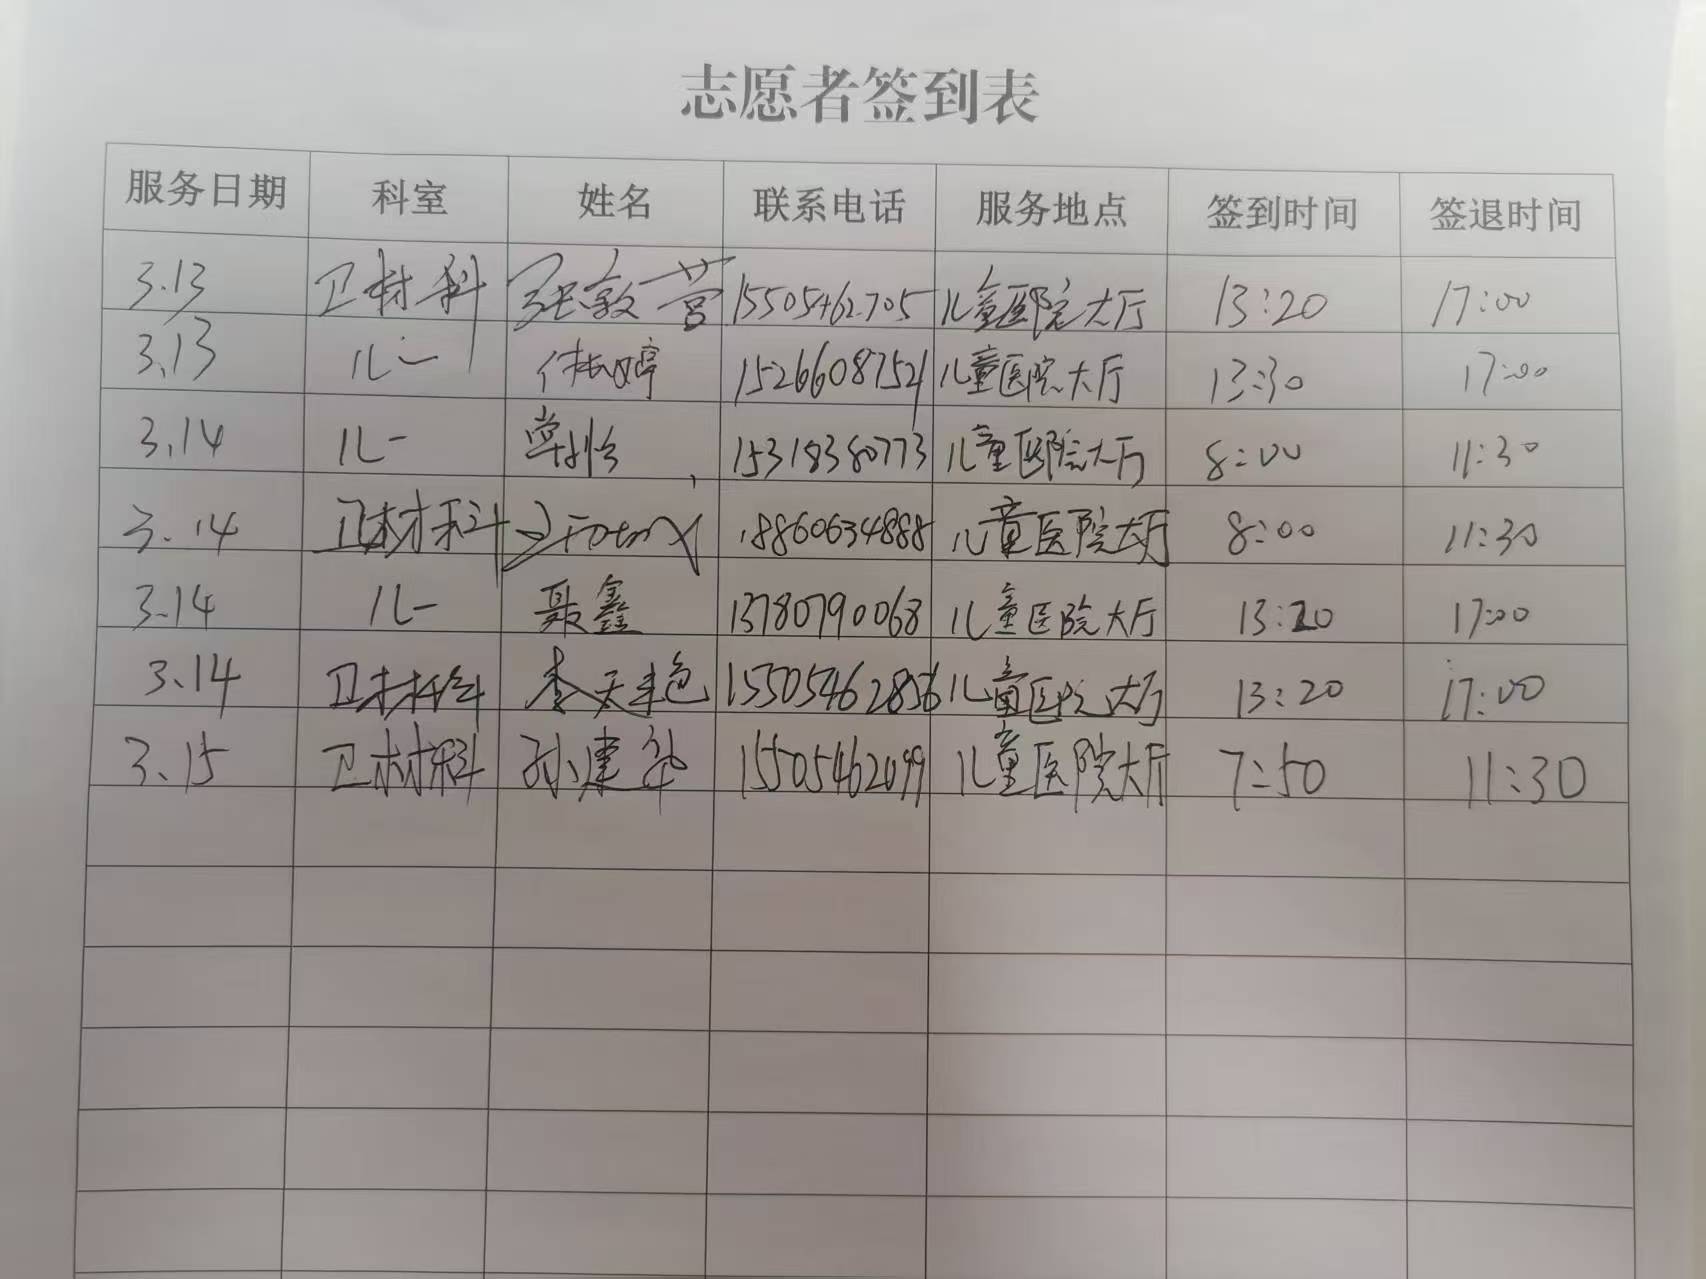 志愿者签到表
服务日期 科室 姓名 联系电话 服务地点 签到时间 签退时间
3.13 卫材科 张敦营 15505462705 儿童医院大厅 13:20 17:00
3.13 儿一 15266087521 儿童医院大厅 13:30 17:00
3.14 儿一 15318380773 儿童医院大厅 8:00 11:30
3.14 卫材科 18860634888 儿童医院大厅 8:00 11:30
3.14 儿一 聂鑫 13780790068 儿童医院大厅 13:20 17:00
3.14 卫材科 15505462856 儿童医院大厅 13:20 17:00
3.15 卫材科 孙建华 15505462099 儿童医院大厅 7:50 11:30